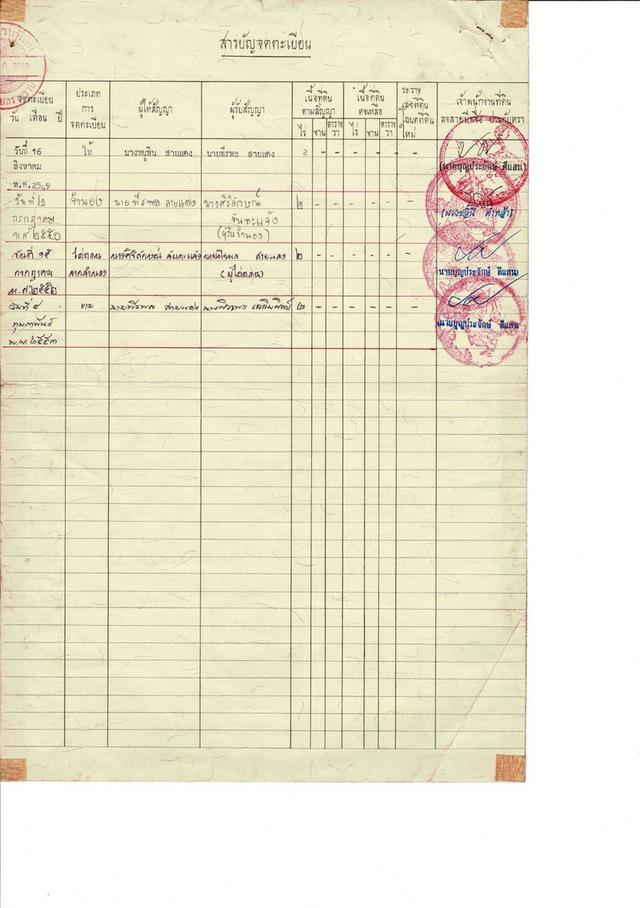 สารบัญจดทะเบียน
จดทะเบียน
วัน เดือน ปี
ประเภท
การ
จดทะเบียน
ผู้ให้สัญญา
ผู้รับสัญญา
เนื้อที่ดิน
ตามสัญญา
ไร่ งาน ตาราง
วา
เนื้อที่ดิน
คงเหลือ
ไร่ งาน ตาราง
วา
ระวาง
เลขที่ดิน
โฉนดที่ดิน
ใหม่
เจ้าพนักงานที่ดิน
ลงลายมือชื่อ ประทับตรา
วันที่ 16 ให้ นางหนูทิน สายแดง นายพีรพล สายแดง 2 - - - - - -
สิงหาคม
พ.ศ. 2549
(นายบุญประจักษ์ ดีแสน)
วันที่ ๒ จำนอง นายพีรพล สายแดง นางศิริลักษณ์ ๒ - - - - - -
กรกฎาคม จันทะแจ้ง
พ.ศ. ๒๕๕๐ (ผู้รับจำนอง)
วันที่ ๑๕ ไถ่ถอน สายแดง ๒ - - - - - -
กรกฎาคม จากจำนอง (ผู้ไถ่ถอน)
พ.ศ. ๒๕๕๒
(นายบุญประจักษ์ ดีแสน)
วันที่ ๕ ขาย นายพีรพล สายแดง ๒ - - - - - -
กุมภาพันธ์
พ.ศ. ๒๕๕๓
(นายบุญประจักษ์ ดีแสน)